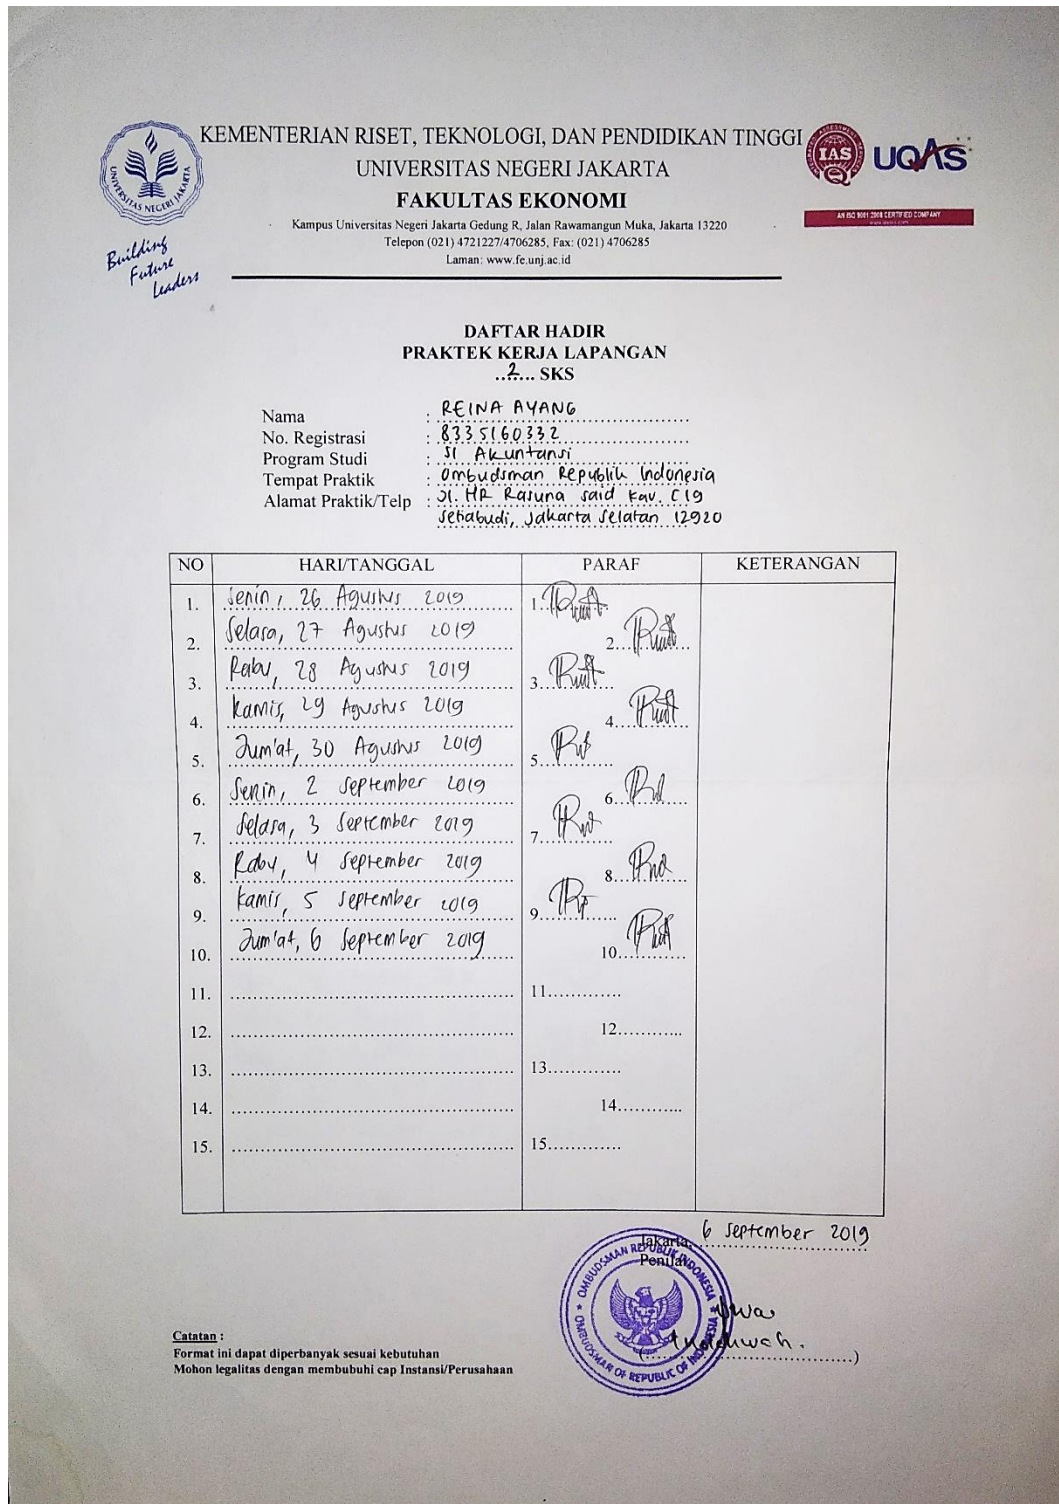 KEMENTERIAN RISET, TEKNOLOGI, DAN PENDIDIKAN TINGGI
UNIVERSITAS NEGERI JAKARTA
FAKULTAS EKONOMI
Kampus Universitas Negeri Jakarta Gedung R, Jalan Rawamangun Muka, Jakarta 13220
Telepon (021) 4721227/4706285, Fax: (021) 4706285
Laman: www.fe.unj.ac.id
UNIVERSITAS NEGERI JAKARTA
Building
Future
Leaders
IAS
UQAS
AN ISO 9001:2008 CERTIFIED COMPANY
DAFTAR HADIR
PRAKTEK KERJA LAPANGAN
..2.... SKS
Nama : REINA AYANG
No. Registrasi : 8335160332
Program Studi : S1 Akuntansi
Tempat Praktik : Ombudsman Republik Indonesia
Alamat Praktik/Telp : Jl. HR Rasuna Said Kav. C19
Setiabudi, Jakarta Selatan 12920
NO HARI/TANGGAL PARAF KETERANGAN
1. Senin, 26 Agustus 2019 1.
2. Selasa, 27 Agustus 2019 2.
3. Rabu, 28 Agustus 2019 3.
4. Kamis, 29 Agustus 2019 4.
5. Jum'at, 30 Agustus 2019 5.
6. Senin, 2 September 2019 6.
7. Selasa, 3 September 2019 7.
8. Rabu, 4 September 2019 8.
9. Kamis, 5 September 2019 9.
10. Jum'at, 6 September 2019 10.
11. 11.
12. 12.
13. 13.
14. 14.
15. 15.
Jakarta, 6 September 2019
Penilai
OMBUDSMAN REPUBLIK INDONESIA
OMBUDSMAN OF REPUBLIC OF INDONESIA
Catatan :
Format ini dapat diperbanyak sesuai kebutuhan
Mohon legalitas dengan membubuhi cap Instansi/Perusahaan